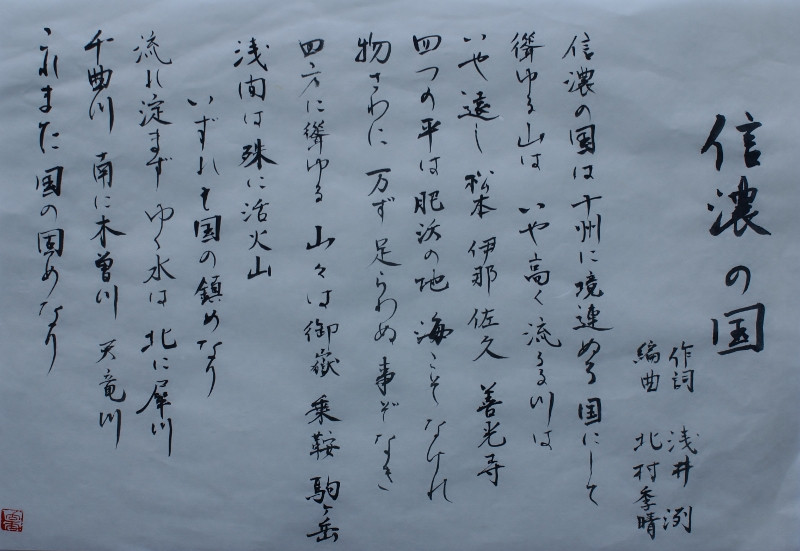 信濃の国
作詞 浅井 洌
編曲 北村季晴
信濃の国は十州に境連ぬる国にして
聳ゆる山はいや高く流るる川は
いや遠し 松本 伊那 佐久 善光寺
四つの平は肥沃の地 海こそなけれ
物さわに 万ず足らわぬ事ぞなき
四方に聳ゆる 山々は御嶽 乗鞍 駒ヶ岳
浅間は殊に活火山
いずれも国の鎮めなり
流れ淀まず ゆく水は 北に犀川
千曲川 南に木曽川 天竜川
これまた国の固めなり